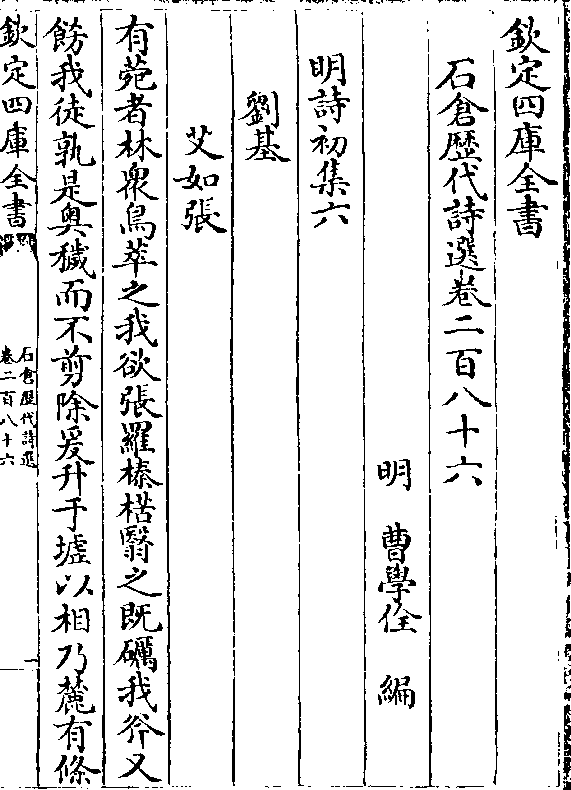 欽定四庫全書
石倉歴代詩選卷二百八十六
明　曹學佺　編
明詩初集六
劉基
艾如張
有菀者林衆鳥萃之我欲張羅榛楛翳之既礪我斧又
餝我徒孰是奥穢而不剪除爰升于墟以相乃麓有條
欽定四庫全書
石倉歴代詩選
卷二百八十六
一